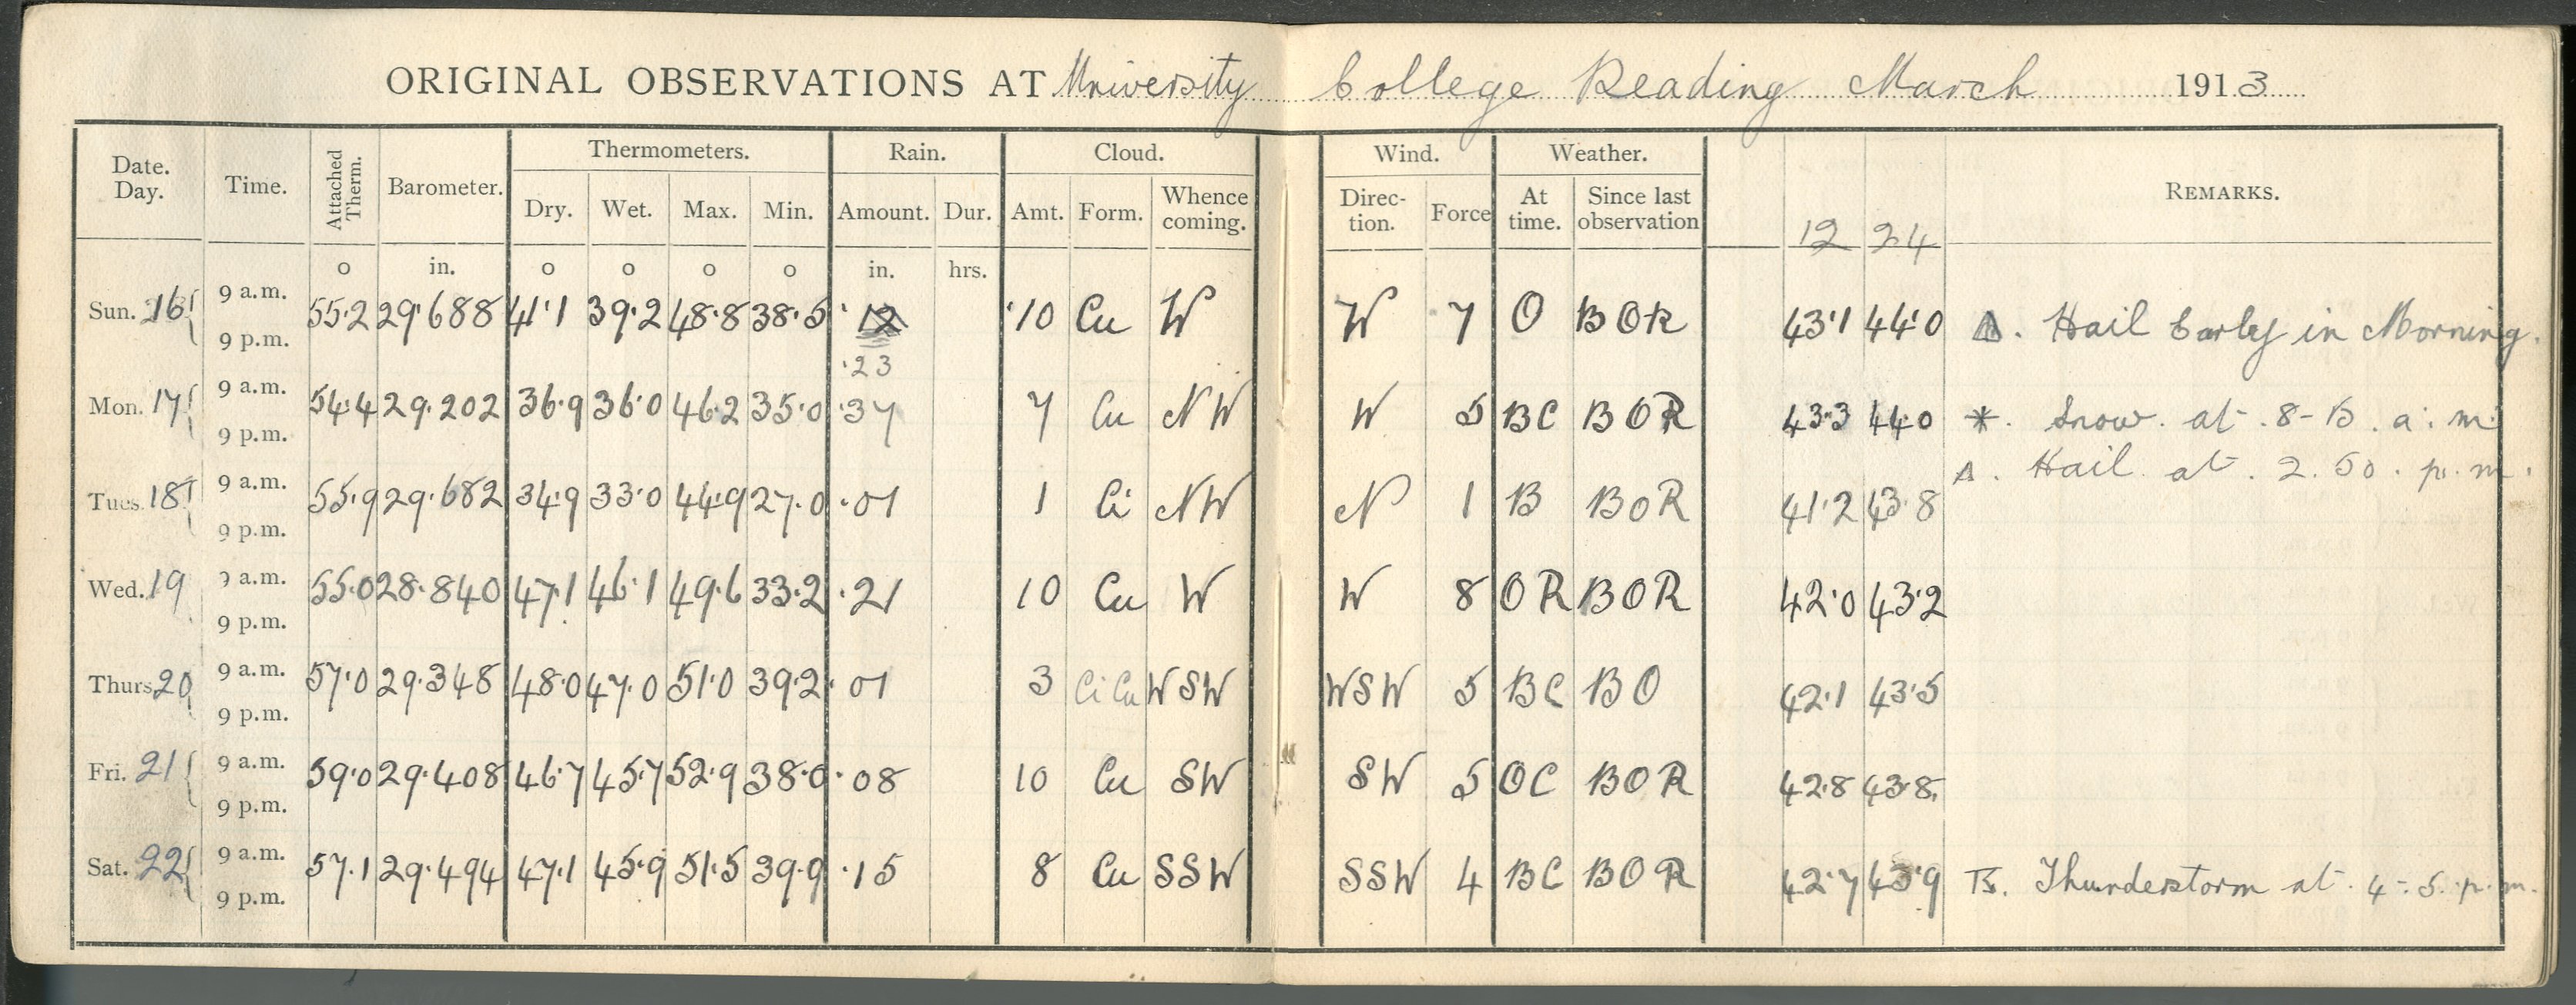 ORIGINAL OBSERVATIONS AT University College Reading March 1913
Date. Day. Time. Attached Therm. Barometer. Thermometers. Rain. Cloud. Wind. Weather. REMARKS.
Dry. Wet. Max. Min. Amount. Dur. Amt. Form. Whence coming. Direc- tion. Force At time. Since last observation 12 24
o in. o o o o in. hrs.
Sun. 16 9 a.m. 9 p.m. 55.2 29.688 41.1 39.2 48.8 38.5 .12 .23 10 Cu W W 7 O BOR 43.1 44.0 △. Hail Early in Morning.
Mon. 17 9 a.m. 9 p.m. 54.4 29.202 36.9 36.0 46.2 35.0 .37 7 Cu NW W 5 BC BOR 43.3 44.0 *. Snow. at. 8-15. a. m.
△. Hail at. 2.50. p.m.
Tues. 18 9 a.m. 9 p.m. 55.9 29.682 34.9 33.0 44.9 27.0 .01 1 Ci NW N 1 B BOR 41.2 43.8
Wed. 19 9 a.m. 9 p.m. 55.0 28.840 47.1 46.1 49.6 33.2 .21 10 Cu W W 8 OR BOR 42.0 43.2
Thurs 20 9 a.m. 9 p.m. 57.0 29.348 48.0 47.0 51.0 39.2 .01 3 CiCu WSW WSW 5 BC BO 42.1 43.5
Fri. 21 9 a.m. 9 p.m. 59.0 29.408 46.7 45.7 52.9 38.0 .08 10 Cu SW SW 5 OC BOR 42.8 43.8
Sat. 22 9 a.m. 9 p.m. 57.1 29.494 47.1 45.9 51.5 39.9 .15 8 Cu SSW SSW 4 BC BOR 42.7 43.9 Thunderstorm at. 4-5. p.m.